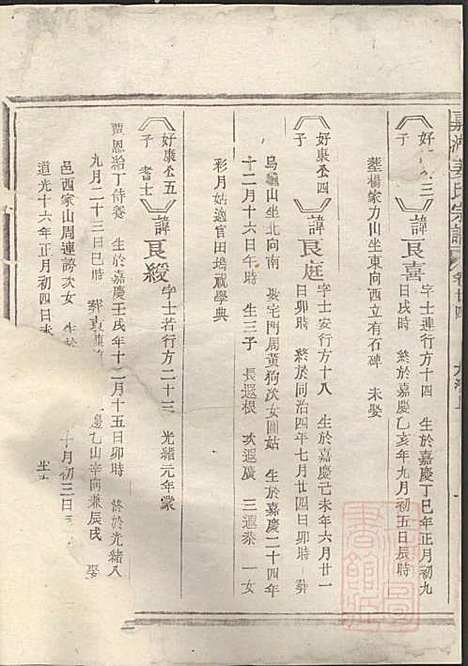 氏宗譜 卷廿四
好 三 子 諱良喜 字士連行方十四 生於嘉慶丁巳年正月初九
日戌時 終於嘉慶乙亥年九月初五日辰時
塟楊家力山坐東向西立有石碑 未娶
好康公四子 諱良庭 字士安行方十八 生於嘉慶己未年六月廿一
日卯時 終於同治四年七月廿四日卯時 葬
烏龜山坐北向南 娶宅門周黃狗次女囩姑 生於嘉慶二十四年
十二月十六日午時 生三子 長遐根 次遐廣 三遐 一女
彩月姑適官田 學典
好康公五子 耆士 諱良緩 字士若行方二十三 光緒元年蒙
賈恩給丁侍養 生於嘉慶壬戌年十二月十五日卯時 終於光緒八
九月二十三日巳時 葬 邊乙山辛向兼辰戌 娶
邑西家山周連謗次女 生於 十月初三日
道光十六年正月初四日未 坐